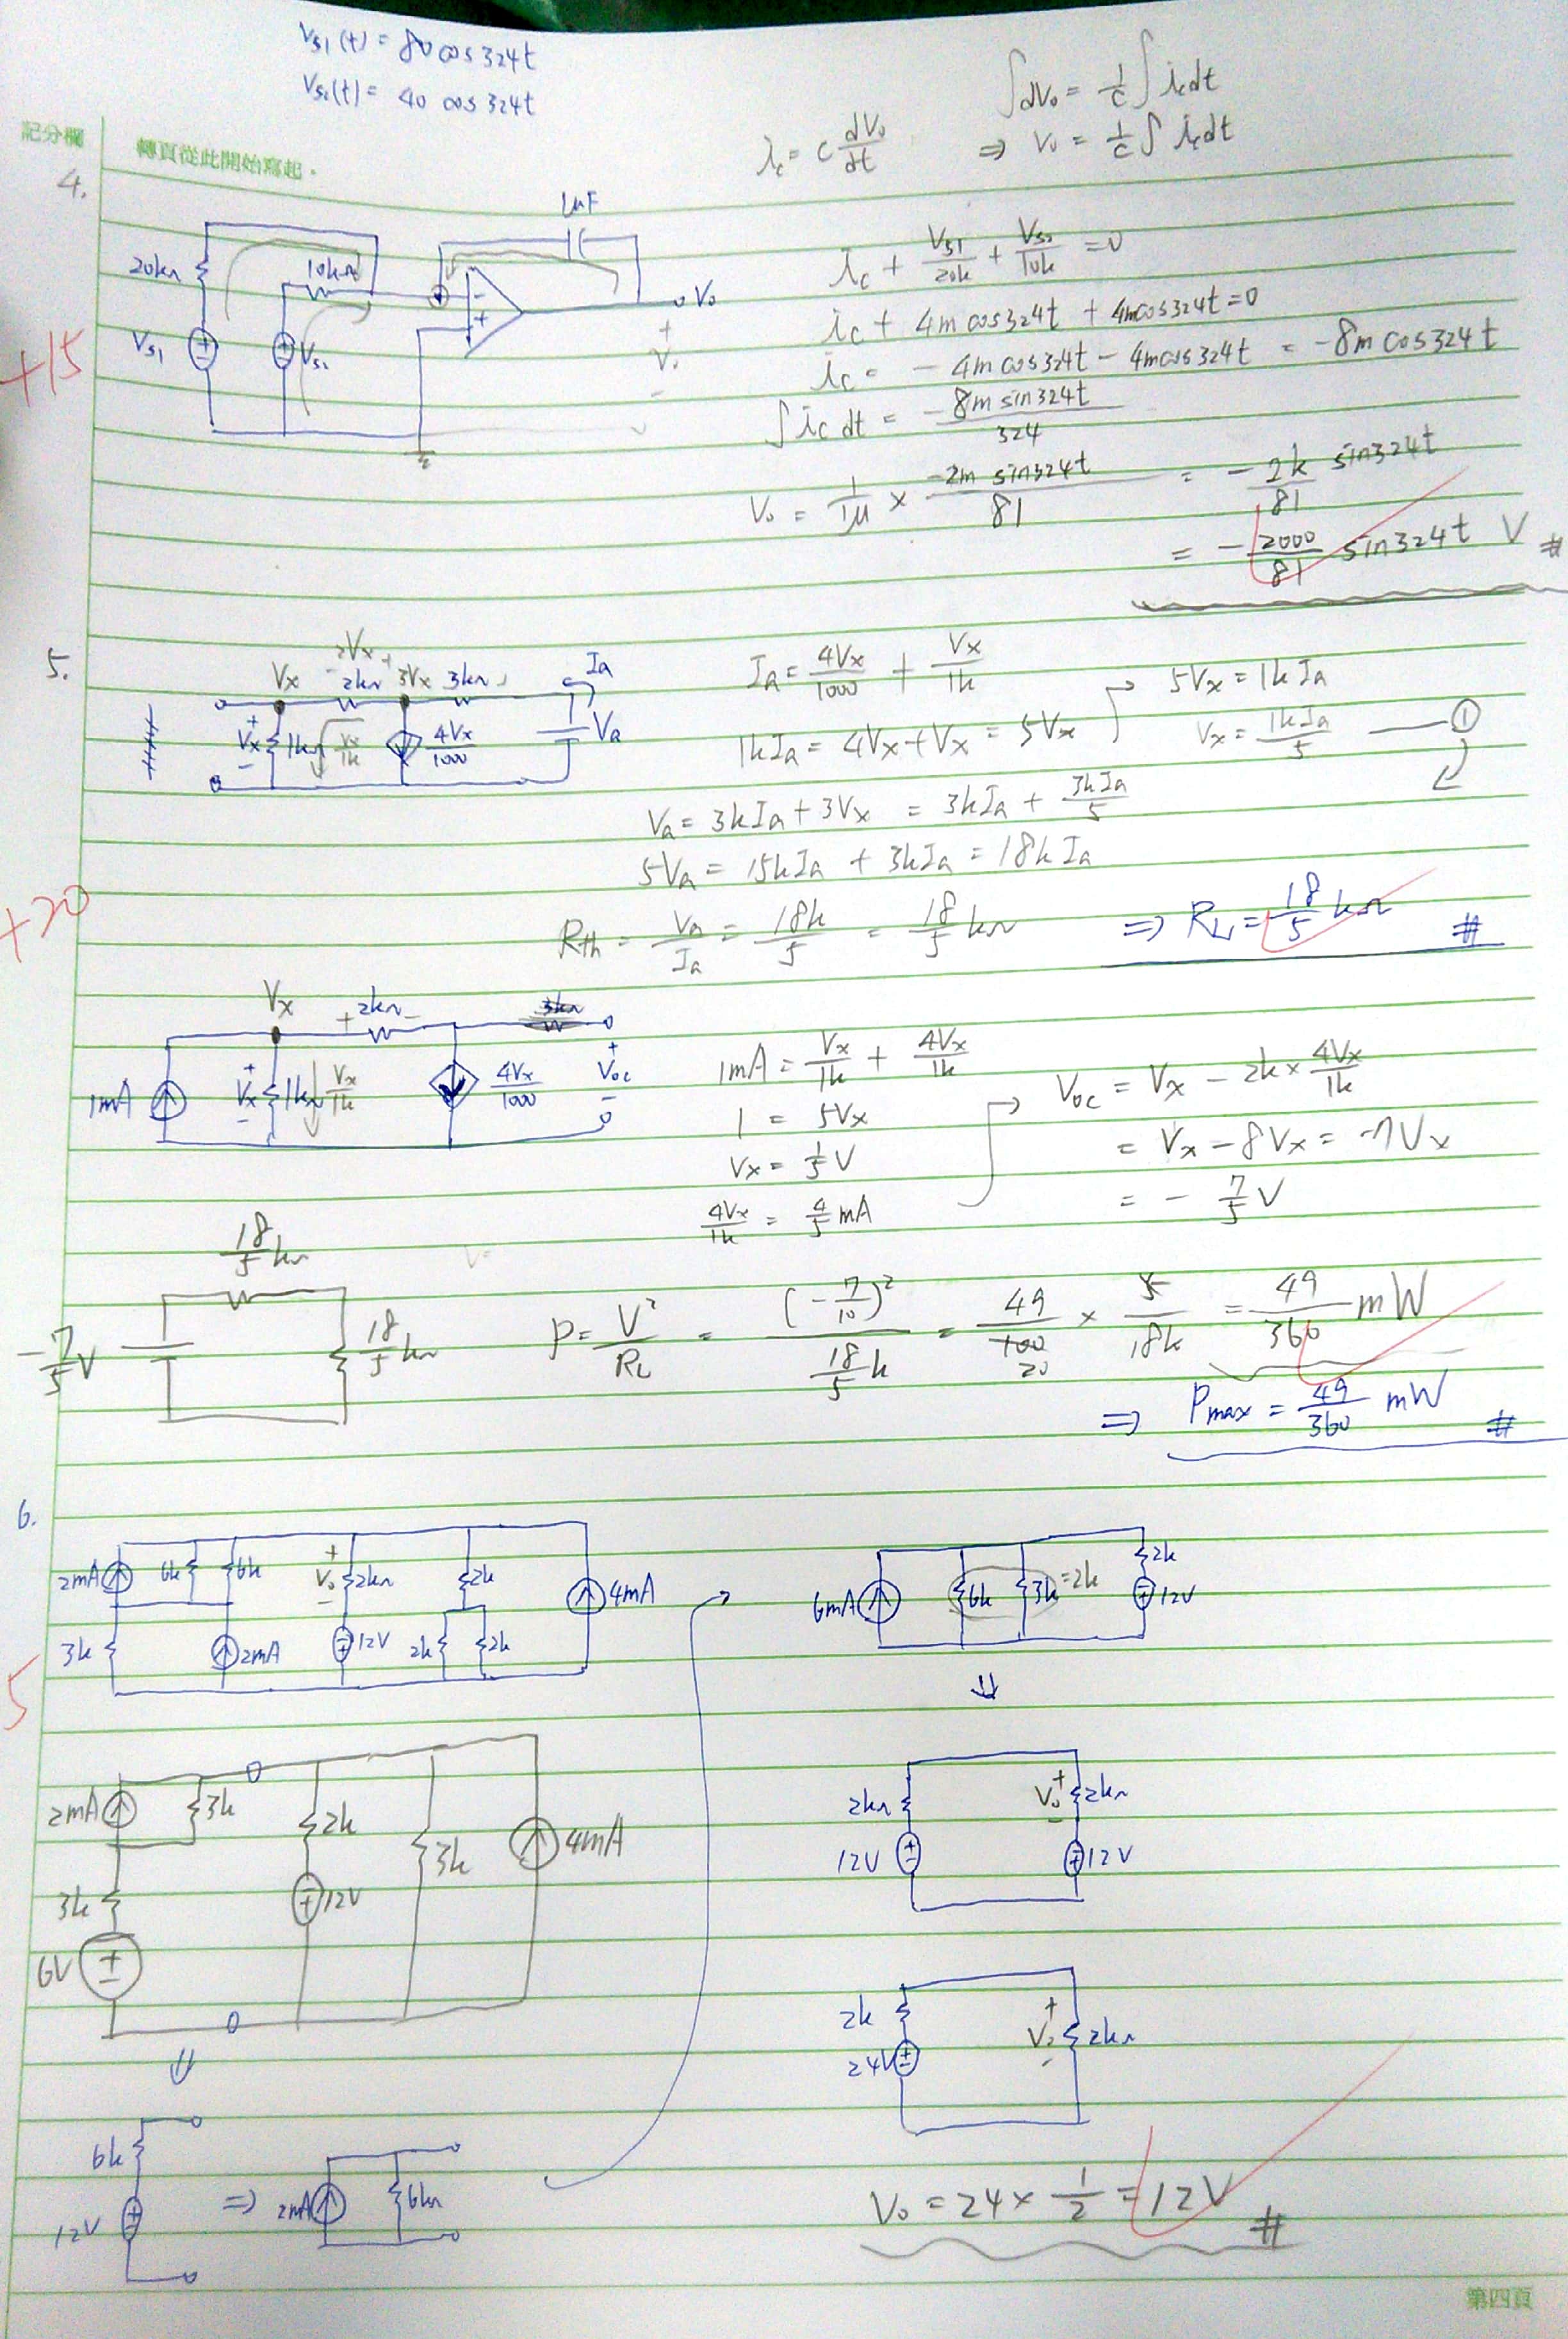 Vs1(t) = 80 cos324t
Vs2(t) = 40 cos324t
∫dVo = 1/C ∫ic dt
ic = C dVo/dt ⇒ Vo = 1/C ∫ ic dt
記分欄
轉頁從此開始寫起。
4.
1μF
20kΩ
10kΩ
Vs1
Vs2
-
+
Vo
+
Vo
-
+15
ic + Vs1/20k + Vs2/10k = 0
ic + 4m cos324t + 4m cos324t = 0
ic = - 4m cos324t - 4m cos324t = -8m cos324t
∫ ic dt = -8m sin324t / 324
Vo = 1/1μ × -2m sin324t / 81 = - 2k/81 sin324t
= - 2000/81 sin324t V #
5.
- 2Vx +
Vx 2kΩ 3Vx 3kΩ Ia
+ Vx - 1kΩ Vx/1k 4Vx/1000 Va
Ia = 4Vx/1000 + Vx/1k
1kIa = 4Vx + Vx = 5Vx
5Vx = 1kIa
Vx = 1kIa/5 ①
Va = 3kIa + 3Vx = 3kIa + 3kIa/5
5Va = 15kIa + 3kIa = 18kIa
+20
Rth = Va/Ia = 18k/5 = 18/5 kΩ ⇒ RL = 18/5 kΩ #
Vx + 2kΩ - 3kΩ
1mA + Vx - 1kΩ Vx/1k 4Vx/1000 + Voc -
1mA = Vx/1k + 4Vx/1k
1 = 5Vx
Vx = 1/5 V
4Vx/1k = 4/5 mA
Voc = Vx - 2k × 4Vx/1k
= Vx - 8Vx = -7Vx
= - 7/5 V
18/5 kΩ
-7/5 V
18/5 kΩ
P = V²/RL = (-7/10)² / 18/5 k = 49/100 20 × 5/18k = 49/360 mW
⇒ Pmax = 49/360 mW #
6.
2mA 6k 6k + Vo - 2kΩ 2k 4mA
3k 2mA 12V 2k 2k
5
6mA 6k 3k =2k 2k 12V
⇓
2mA 3k 2k 3k 4mA
3k 12V
6V
⇓
2kΩ Vo + - 2kΩ
12V 12V
2k + Vo - 2kΩ
24V
6k
12V
⇒ 2mA 6kΩ
Vo = 24 × 1/2 = 12V #
第四頁